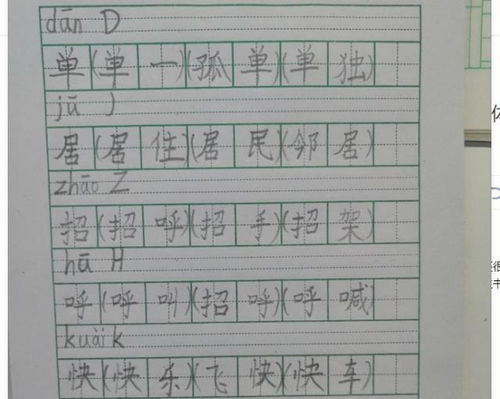 dān D
单(单一)(孤单)(单独)
jū J
居(居住)(居民)(邻居)
zhāo Z
招(招呼)(招手)(招架)
hū H
呼(呼叫)(招呼)(呼喊)
kuài k
快(快乐)(飞快)(快车)